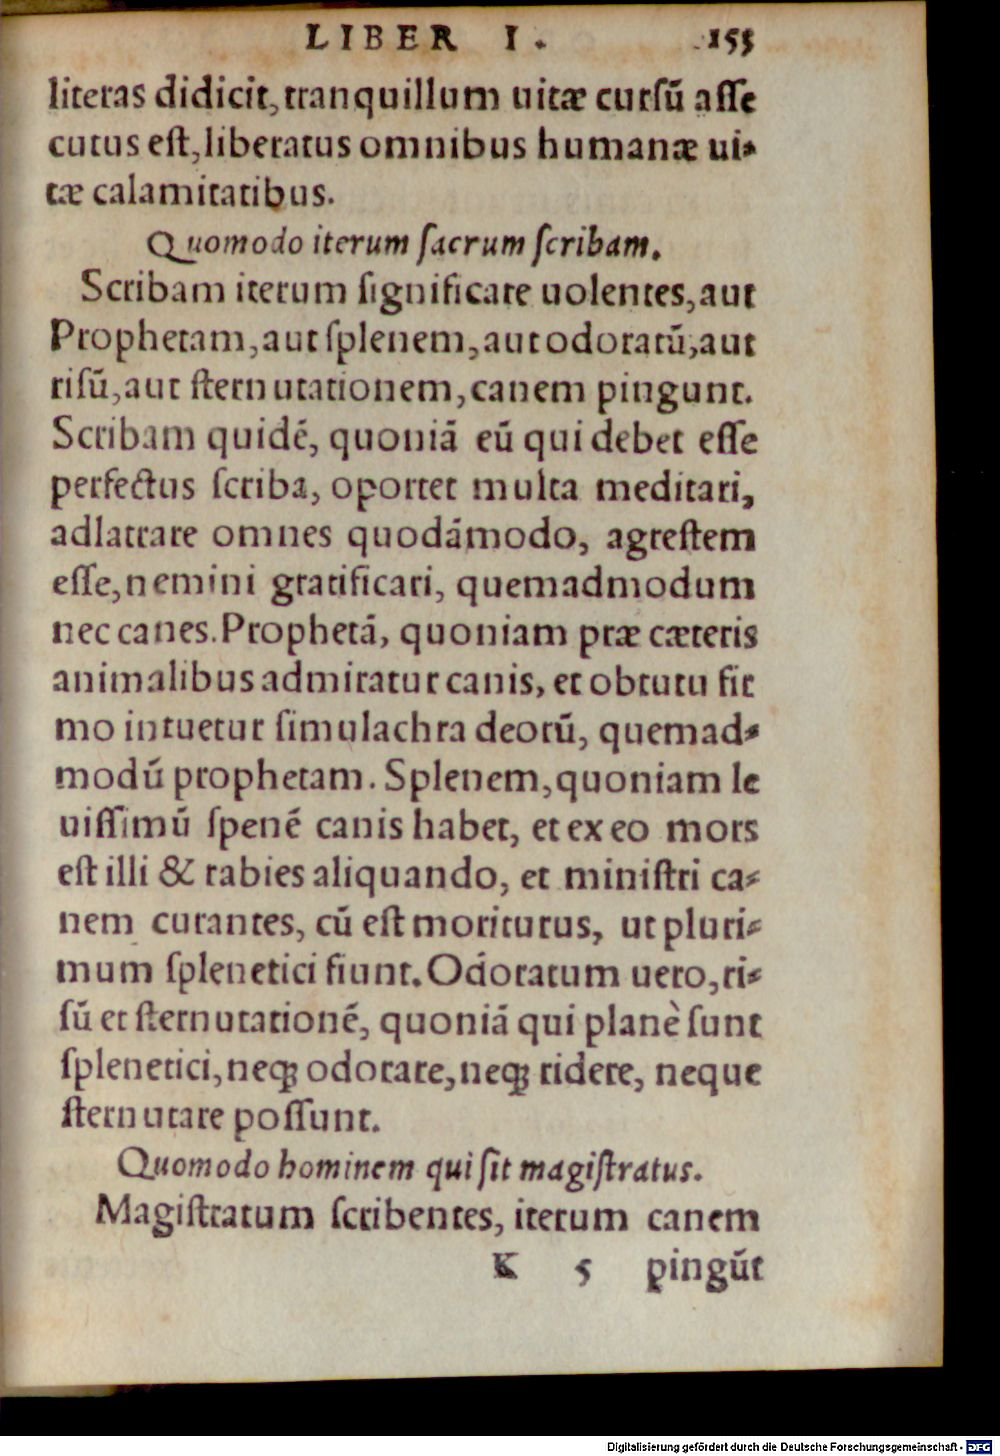 LIBER I. 155
literas didicit, tranquillum uitæ cursũ asse
cutus est, liberatus omnibus humanæ ui-
tæ calamitatibus.
Quomodo iterum sacrum scribam.
Scribam iterum significare uolentes, aut
Prophetam, aut splenem, aut odoratũ, aut
risũ, aut sternutationem, canem pingunt.
Scribam quidẽ, quoniã eũ qui debet esse
perfectus scriba, oportet multa meditari,
adlatrare omnes quodãmodo, agrestem
esse, nemini gratificari, quemadmodum
nec canes. Prophetã, quoniam præ cæteris
animalibus admiratur canis, et obtutu fir
mo intuetur simulachra deorũ, quemad-
modũ prophetam. Splenem, quoniam le
uissimũ spenẽ canis habet, et ex eo mors
est illi & rabies aliquando, et ministri ca-
nem curantes, cũ est moriturus, ut pluri-
mum splenetici fiunt. Odoratum uero, ri-
sũ et sternutationẽ, quoniã qui planè sunt
splenetici, neq; odorare, neq; ridere, neque
sternutare possunt.
Quomodo hominem qui sit magistratus.
Magistratum scribentes, iterum canem
K 5 pingũt
Digitalisierung gefördert durch die Deutsche Forschungsgemeinschaft - DFG